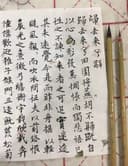 歸去來兮辭
歸去來兮田園將蕪胡不歸既自
以心為形役奚惆悵而獨悲悟已
往之不諫知來者之可追實迷途
其未遠覺今是而昨非舟遙遙以輕
颺風飄飄而吹衣問征夫以前路恨
晨光之熹微乃瞻衡宇載欣載奔
僮僕歡迎稚子候門三徑就荒松菊